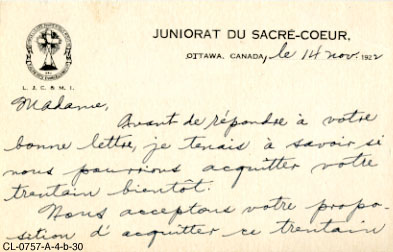 JUNIORAT DU SACRÉ-COEUR,
OTTAWA, CANADA, le 14 nov. 1922
L. J. C. & M. I.
Madame,
Avant de répondre à votre
bonne lettre, je tenais à savoir si
nous pourrions acquitter votre
trentain bientôt.
Nous acceptons votre propo-
sition d'acquitter ce trentain
CL-0757-A-4-b-30